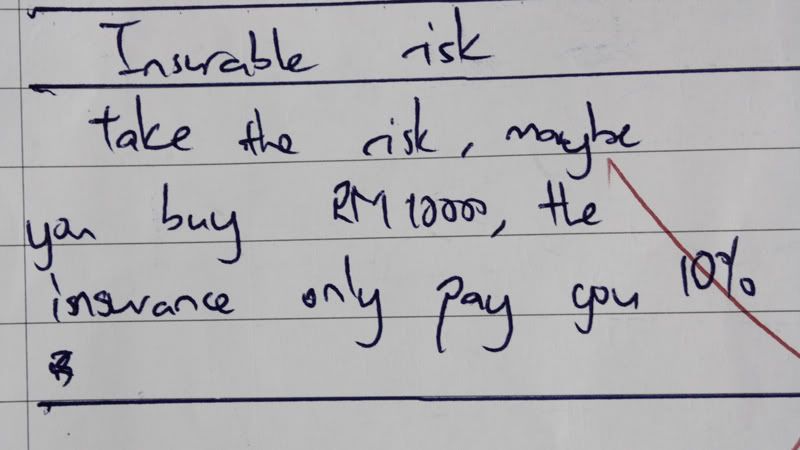 Insurable risk
take the risk, maybe
you buy RM10000, the
insurance only pay you 10%